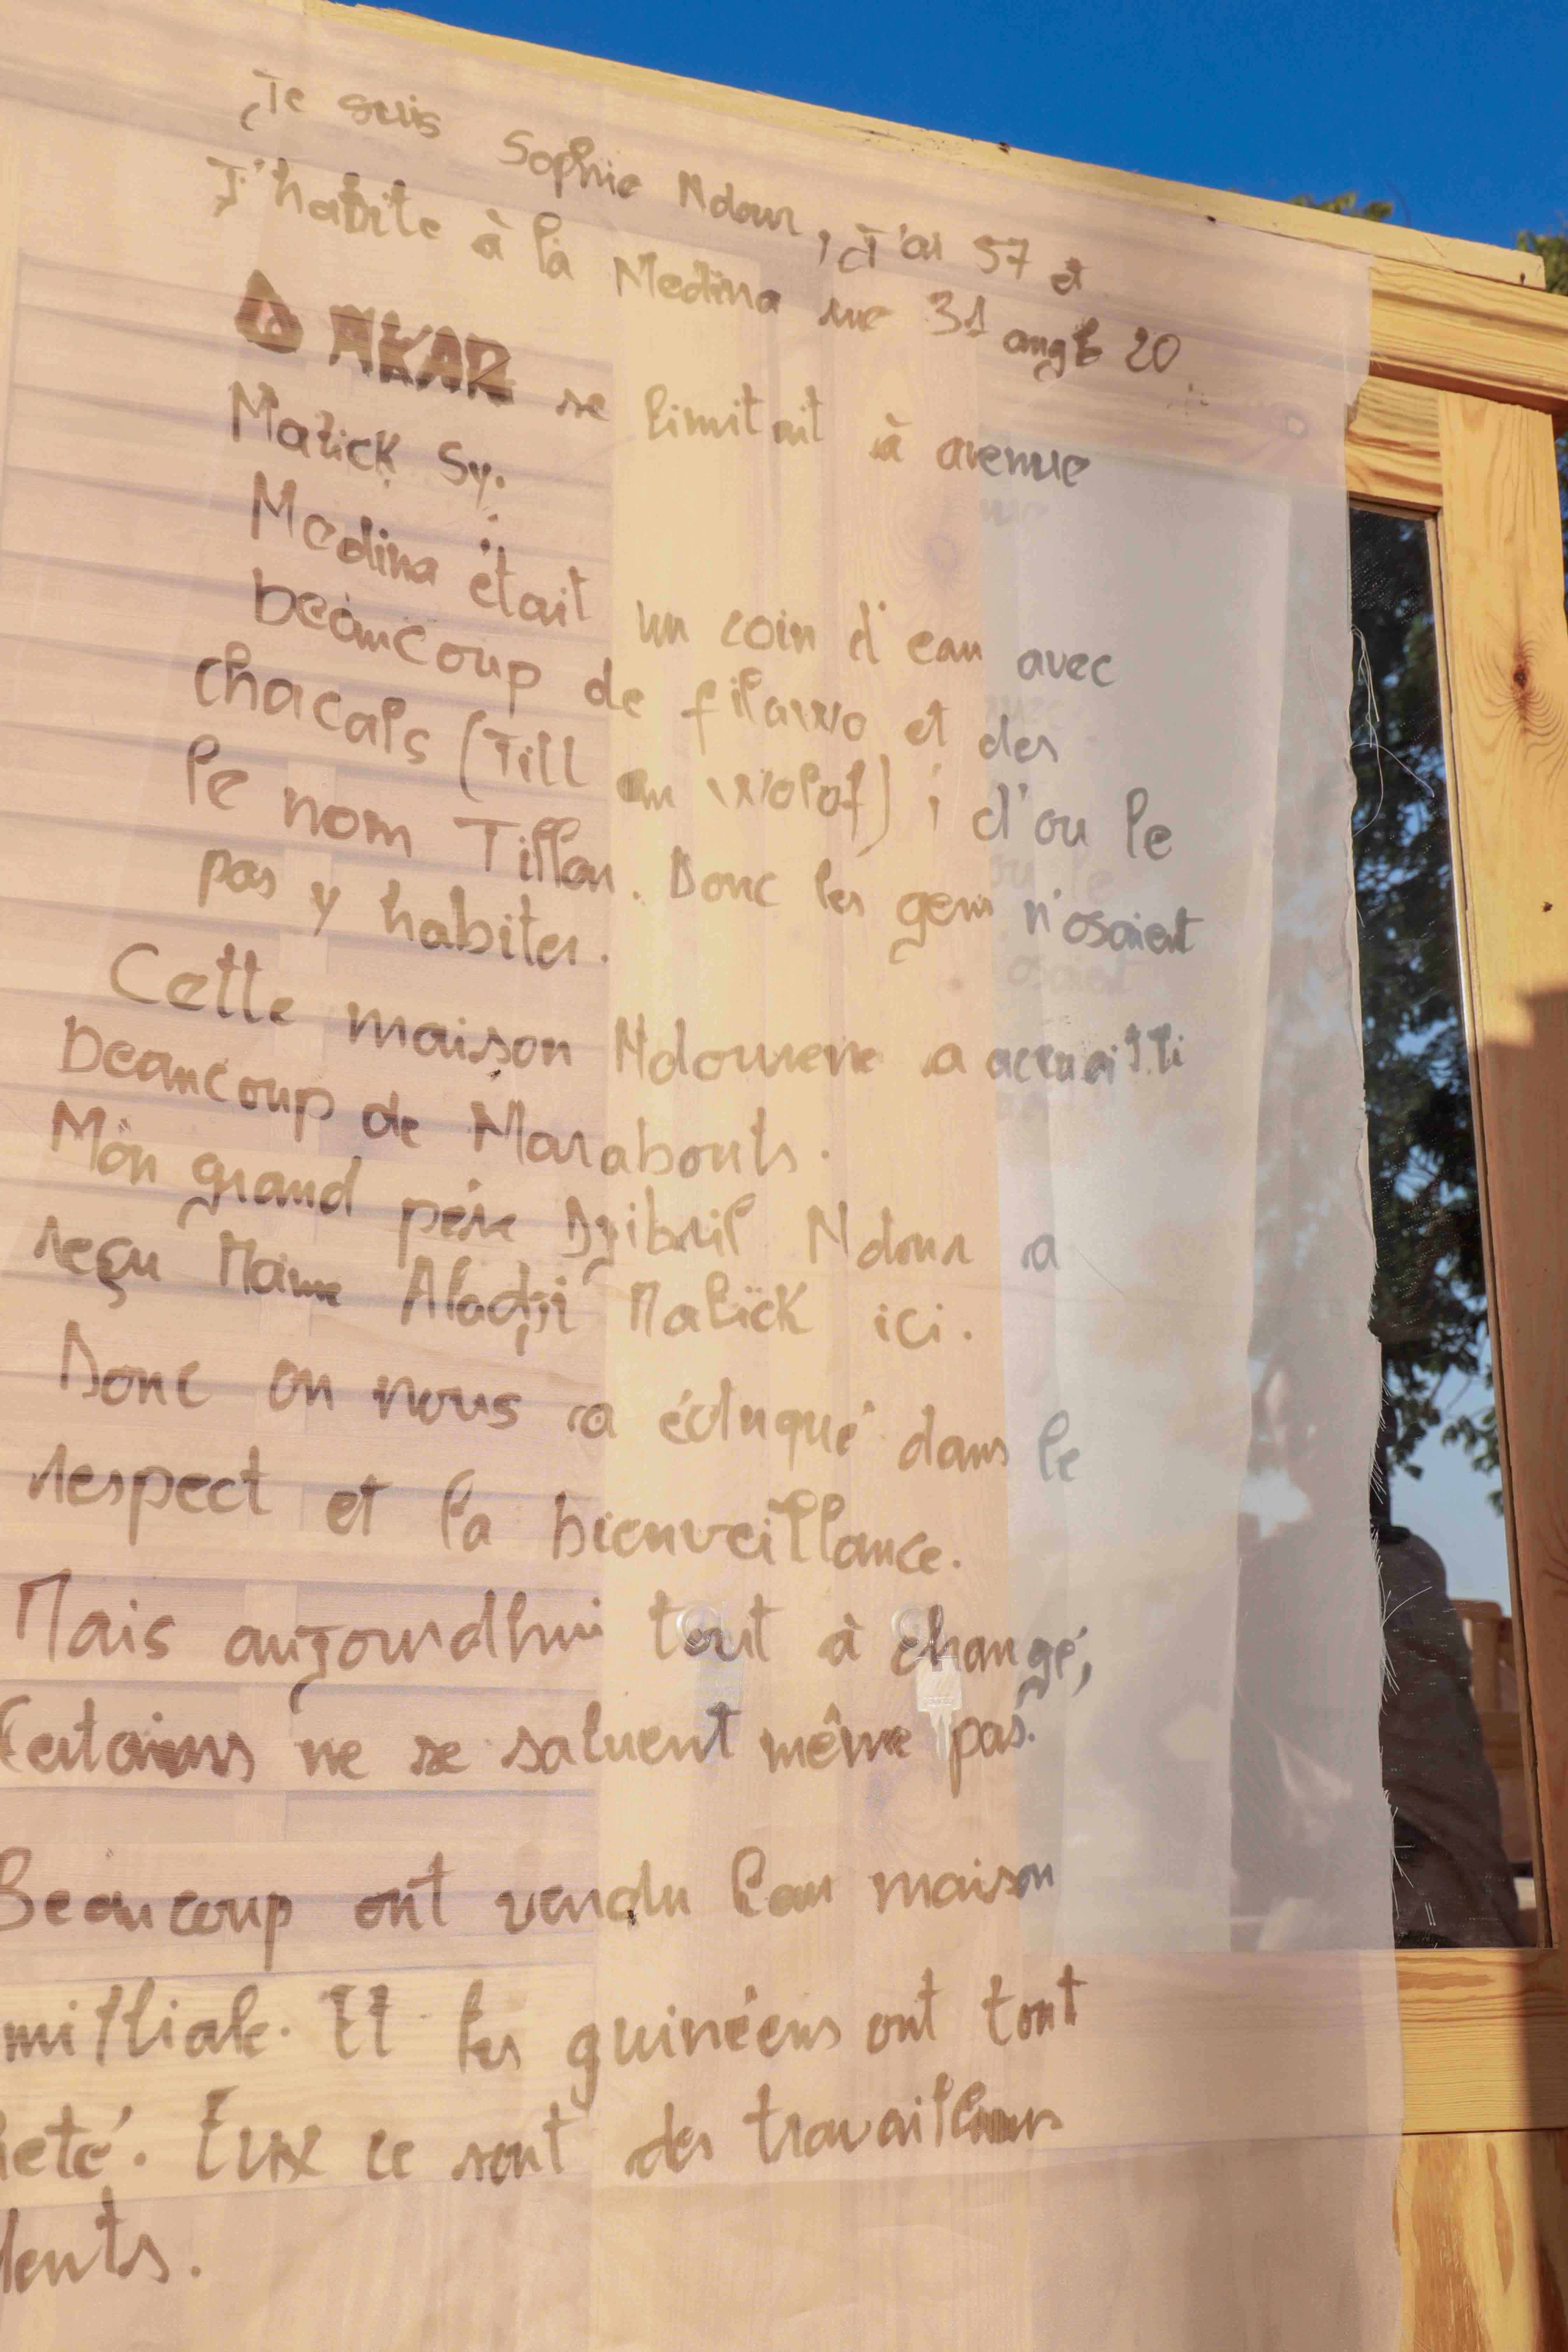 Je suis Sophie Ndour, j'ai 57 et
J'habite à la Medina rue 31 angle 20.
DAKAR se limitait à avenue
Malick Sy.
Medina était un coin d'eau avec
beaucoup de filawo et des
chacals (Till en wolof) ; d'ou le
le nom Tillen. Donc les gens n'osaient
pas y habiter.
Cette maison Ndourene a accueilli
beaucoup de Marabouts.
Mon grand père Djibril Ndour a
reçu Mame Aladji Malick ici.
Donc on nous a éduqué dans le
respect et la bienveillance.
Mais aujourdhui tout à changé,
Certains ne se saluent même pas.
Beaucoup ont vendu leur maison
milliale. Et les guinéens ont tout
heté. Eux ce sont des travailleurs
dents.